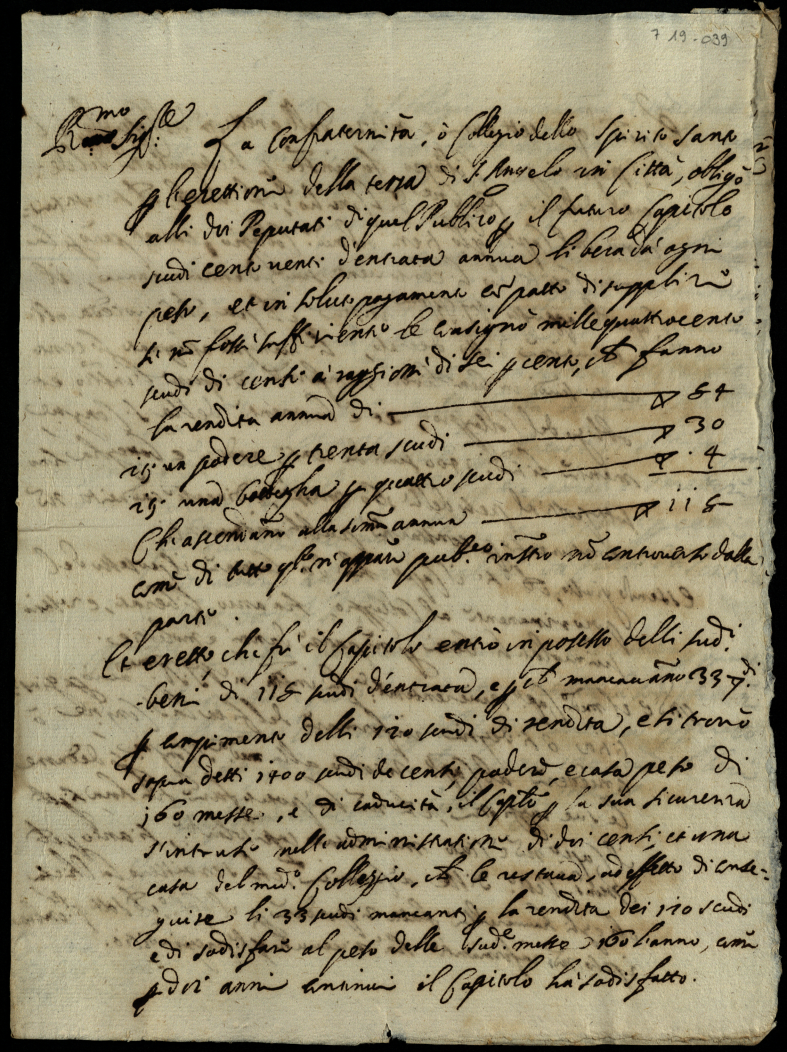 7 19-039
R.mo Sig.re La Confraternità, ò Collegio dello Spirito Santo
p l'erettione della terra di S. Angelo in Città, obligò
alli doi Deputati di quel Publico p il futuro Capitolo
scudi cento venti d'entrata annua libera da ogni
peso, et in soluto pagamento con patto di supplire
se nõ fosse sufficiente le consignò mille quattrocento
scudi di censi à raggione di sei p cento, ch fanno
la rendita annua di 84
un podere p trenta scudi 30
una bottegha p quattro scudi 4
Ch'ascendano alla somma annua 118
come di tutto n'appare pub.co instro nõ controverso dalla
parte
Et eretto, che fù il Capitolo entrò in possesso delli sud.i
beni di 118 scudi d'entrata, e p ch mancavano 33 di
p compimento delli 120 scudi di rendita, e si trovò
sopra detti 1400 scudi de censi, podere, e casa peso di
160 messe, e di caducità, il Cap.lo p la sua sicurezza
s'intruse nell'administratione di doi censi, et una
casa del med.o Colleggio, ch le restava, ad effetto di conse=
guire li 33 scudi mancanti p la rendita dei 120 scudi
e di sodisfare al peso delle sud.e messe 160 l'anno, come
p doi anni continui il Capitolo hà sodisfatto.